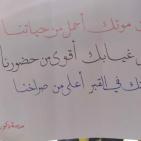 موتك أجمل من حياتنا
غيابك أقوى من حضورنا
في القبر أعلى من صراخنا